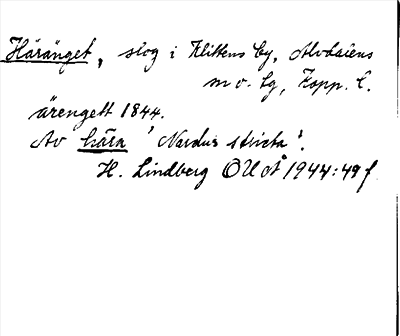 Häränget, slog i Klittens by, Älvdalens
m o. lg, Kopp. l.
ärengett 1844.
Av hära 'Nardus stricta'.
H. Lindberg OUÅ 1944:49 f